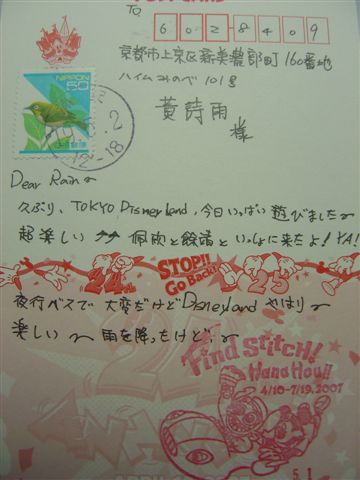 POST CARD
TO
6028409
京都市上京区新美濃部町160番地
ハイムみのべ 101号
黄詩雨
様
NIPPON
50
.2
12-18
Dear Rain~
久ぶり、TOKYO Disneyland,今日いっぱい 遊びました~
超楽しい 佩欣と餘靖といっしょに来たよ! YA!
24th STOP!! Go Back! 25
夜行ベスで 大変だけどDisneyland やはり~
楽しい~ 雨を降ったけど。~
Find Stitch!
Hana Hou!!
4/10-7/19.2007
5.1